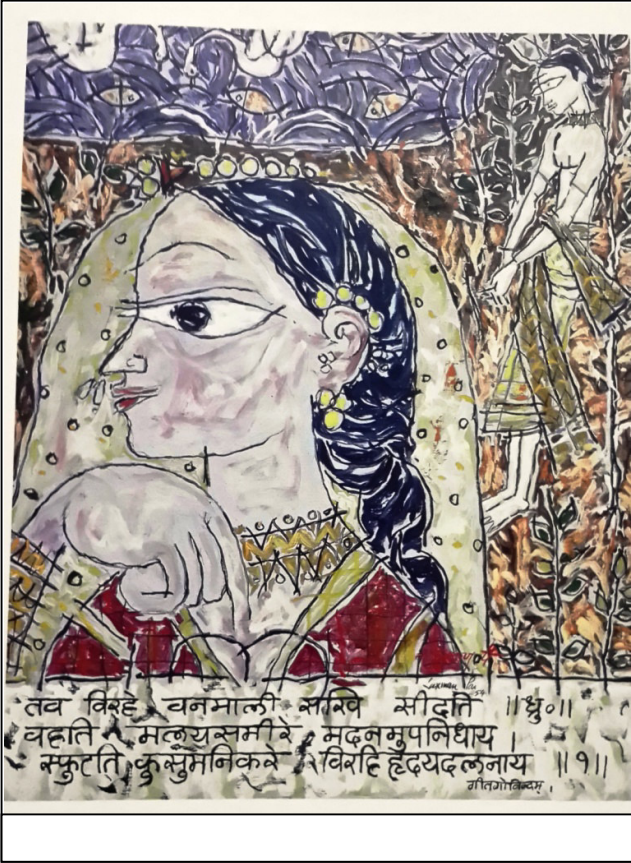 तव विरहे वनमाली सखि सीदति ॥ध्रु०॥
वहति मलयसमीरे मदनमुपनिधाय।
स्फुटति कुसुमनिकरे विरहिहृदयदलनाय ॥१॥
गीतगोविन्दम्।